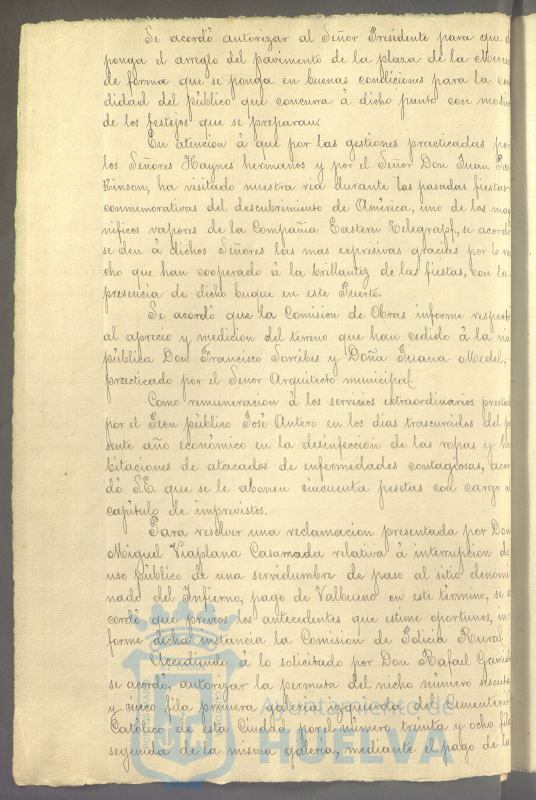 Se acordó autorizar al Señor Presidente para que
ponga el arreglo del pavimento de la plaza de la Merced
de forma que se ponga en buenas condiciones para la
didad del público que concurra á dicho punto con motivo
de los festejos que se preparan.
En atencion á que por las gestiones practicadas por
los Señores Haynes hermanos y por el Señor Don Juan
Kinson, ha visitado nuestra ria durante las pasadas fiestas
conmemorativas del descubrimiento de América, uno de los mag
nificos vapores de la Compañia Eastern Telegrapf, se acordó
se den á dichos Señores las mas expresivas gracias por lo mu
cho que han cooperado á la brillantez de las fiestas, con la
presencia de dicho buque en este Puerto.
Se acordó que la Comision de Obras informe respecto
al aprecio y medicion del terreno que han cedido á la
pública Don Francisco y Doña Juana Medel,
practicado por el Señor Arquitecto municipal.
Como remuneracion á los servicios extraordinarios prestados
por el Peon público José Antero en los dias trascurridos del
sente año económico en la desinfección de las ropas y ha
bitaciones de atacados de enfermedades contagiosas, acor
dó S.E. que se le abonen cincuenta pesetas con cargo al
capítulo de imprevistos.
Para resolver una reclamacion presentada por Don
Miguel Viaplana Casamada relativa á interrupcion de
uso público de una servidumbre de paso al sitio denomi
nado del Infierno, pago de Valbueno en este término, se a
cordó que previos los antecedentes que estime oportunos, in
forme dicha instancia la Comision de Policia Rural.
Accediendo á lo solicitado por Don Rafael
se acordó, autorizar la permuta del nicho número sesenta
y cinco fila primera galeria izquierda del Cementerio
Católico de esta Ciudad por el número treinta y ocho fila
segunda de la misma galeria, mediante el pago de la
Ayuntamiento de
HUELVA